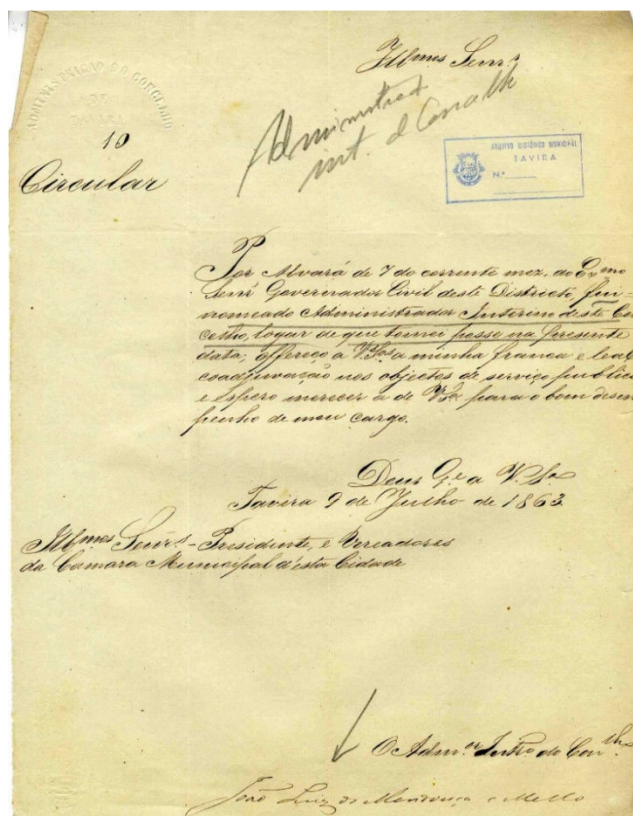 Ill.mos Senr.s
ADMINISTRAÇÃO DO CONCELHO
DE
TAVIRA
Administrad
int. d Concelh
10
Circular
ARQUIVO HISTÓRICO MUNICIPAL
TAVIRA
N.º
Por Alvará de 7 do corrente mez, do Ex.mo
Senr Governador Civil deste Districto, fui
nomeado Administrador Interino deste Con
celho, logar de que tomei posse na presente
data; offereço a V.Sas a minha franca e leal
coadjuvação nos objectos de serviço publico
e espero merecer a de V.Sas para o bom desem
penho de meu cargo.
Deus G.e a V.Sas
Tavira 9 de Julho de 1863
Ill.mos Senr.s Presidente, e Vereadores
da Camara Municipal d'esta Cidade
O Adm.or Intro do Con.lho
João Luiz de Mendonça e Mello